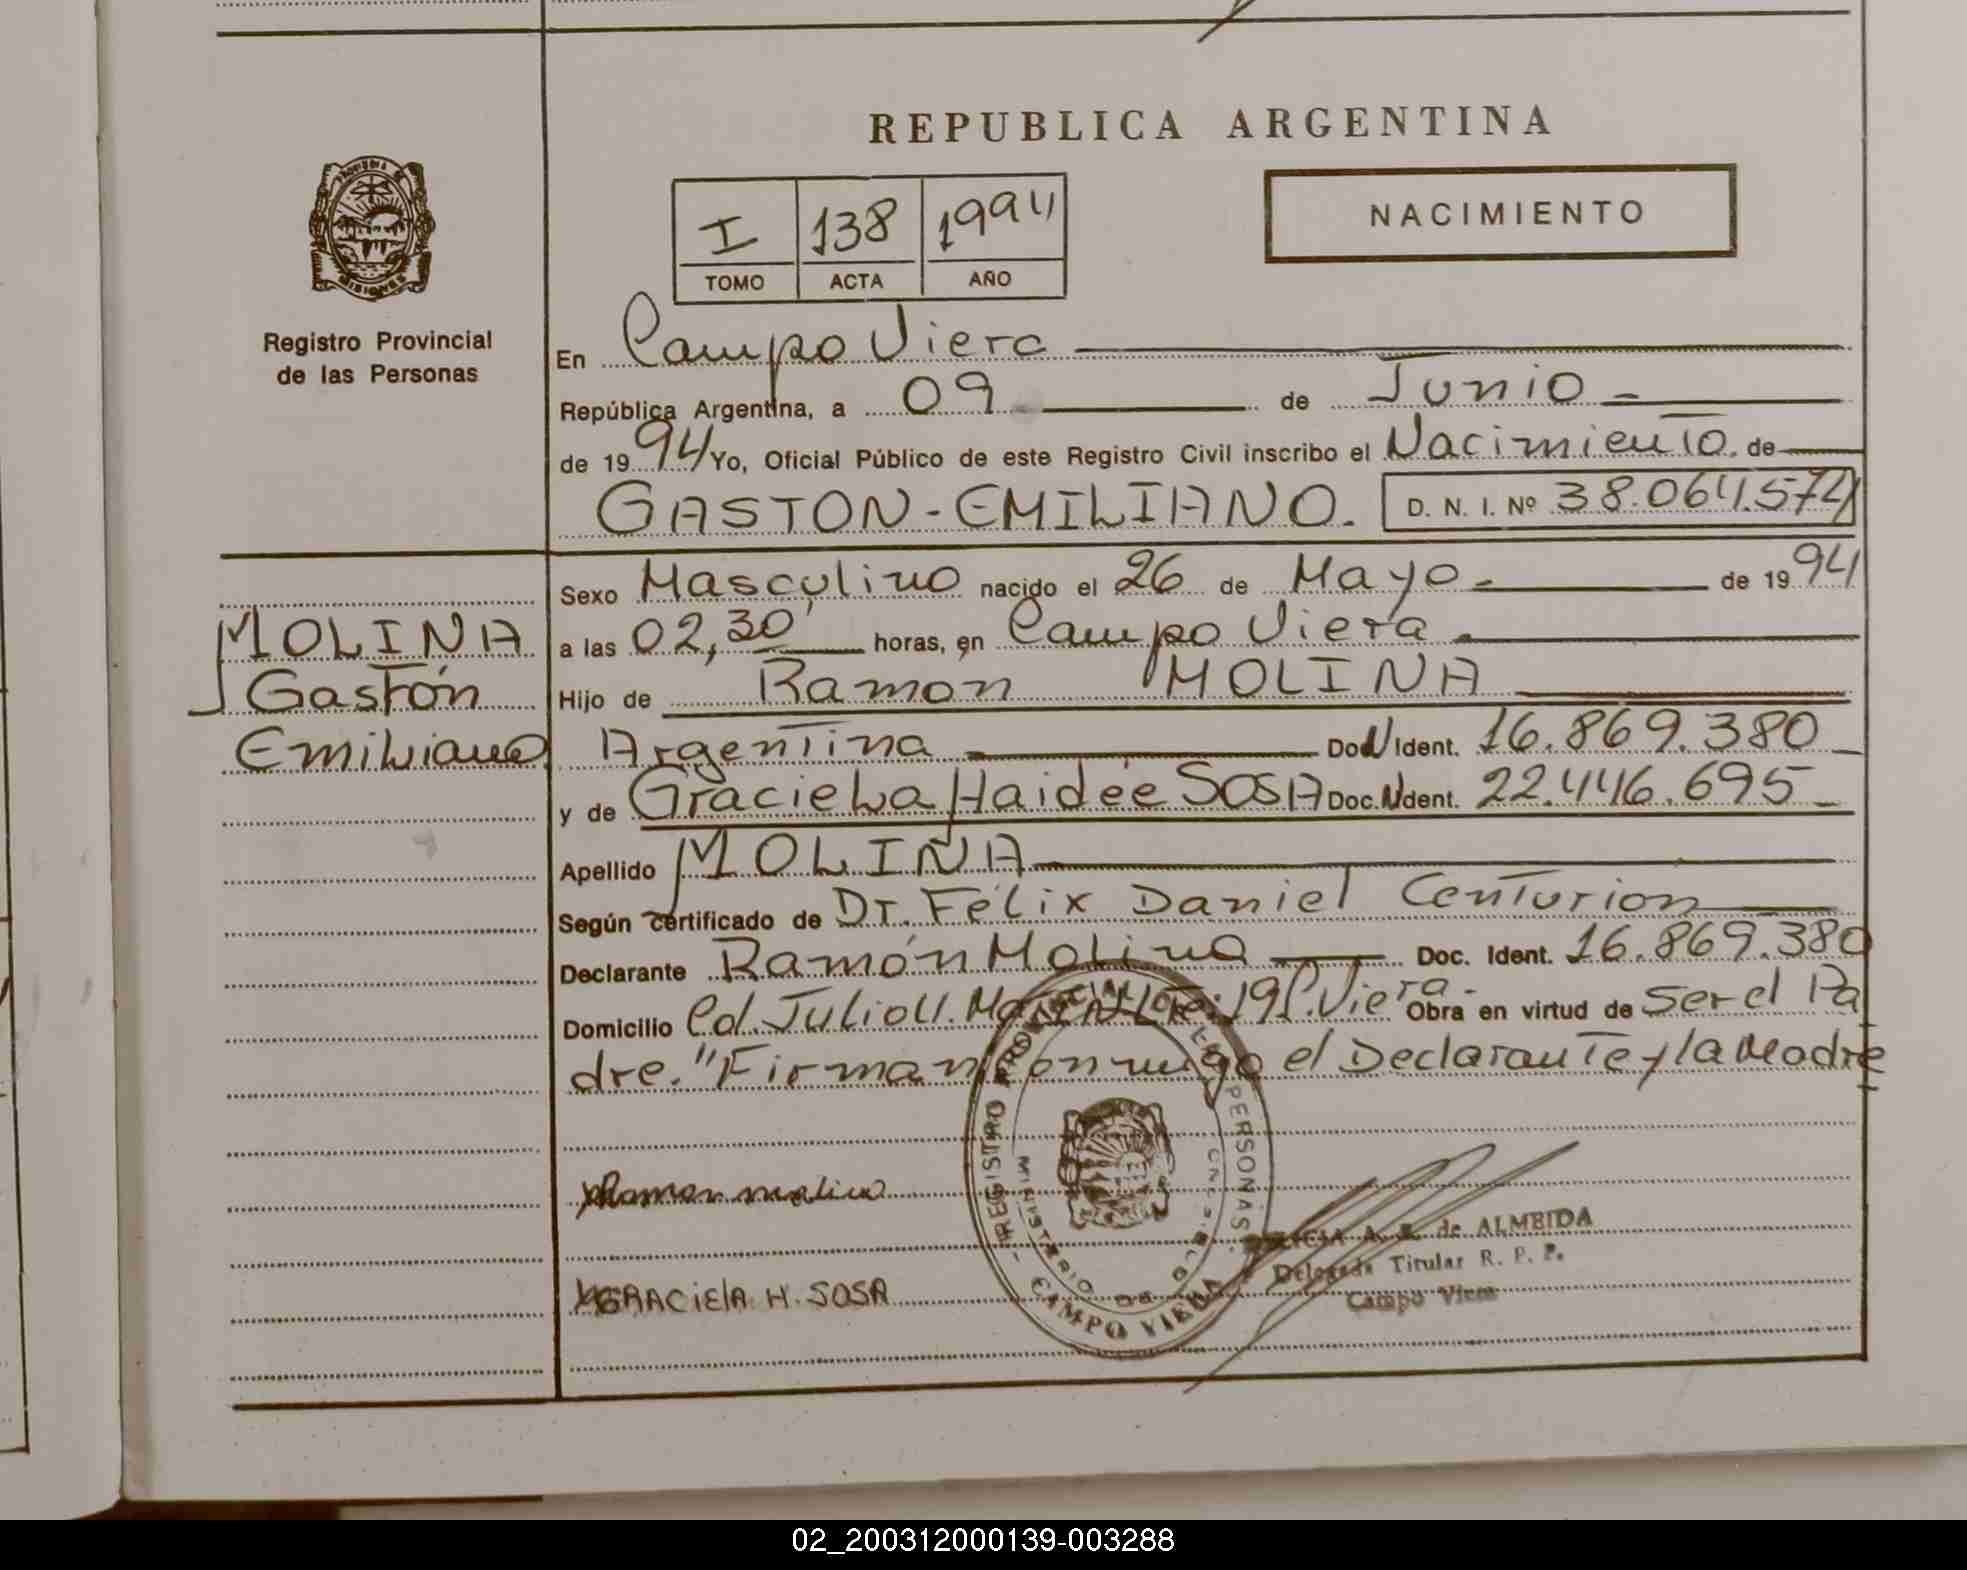 REPUBLICA ARGENTINA
NACIMIENTO
I 138 1994
TOMO ACTA AÑO
PROVINCIA DE
MISIONES
Registro Provincial
de las Personas
En Campo Viera
República Argentina, a 09 de Junio
de 1994 Yo, Oficial Público de este Registro Civil inscribo el Nacimiento de
GASTON-EMILIANO. D. N. I. Nº 38.064.574
MOLINA
Gastón
Emiliano
Sexo Masculino nacido el 26 de Mayo de 1994
a las 02,30 horas, en Campo Viera
Hijo de Ramon MOLINA
Argentina Doc. N Ident. 16.869.380
y de Graciela Haidée SOSA Doc. N Ident. 22.446.695
Apellido MOLINA
Según certificado de Dr. Félix Daniel Centurion
Declarante Ramón Molina Doc. Ident. 16.869.380
Domicilio Viera. Obra en virtud de Ser el Pa
dre. "Firman conmigo el Declarante y la Madre
Ramon molina
GRACIElA H. SOSA
REGISTRO PROVINCIAL DE LAS PERSONAS
MINISTERIO DE GOBIERNO
CAMPO VIERA
de ALMEIDA
Delegada Titular R. P. P.
Campo Viera
02_200312000139-003288